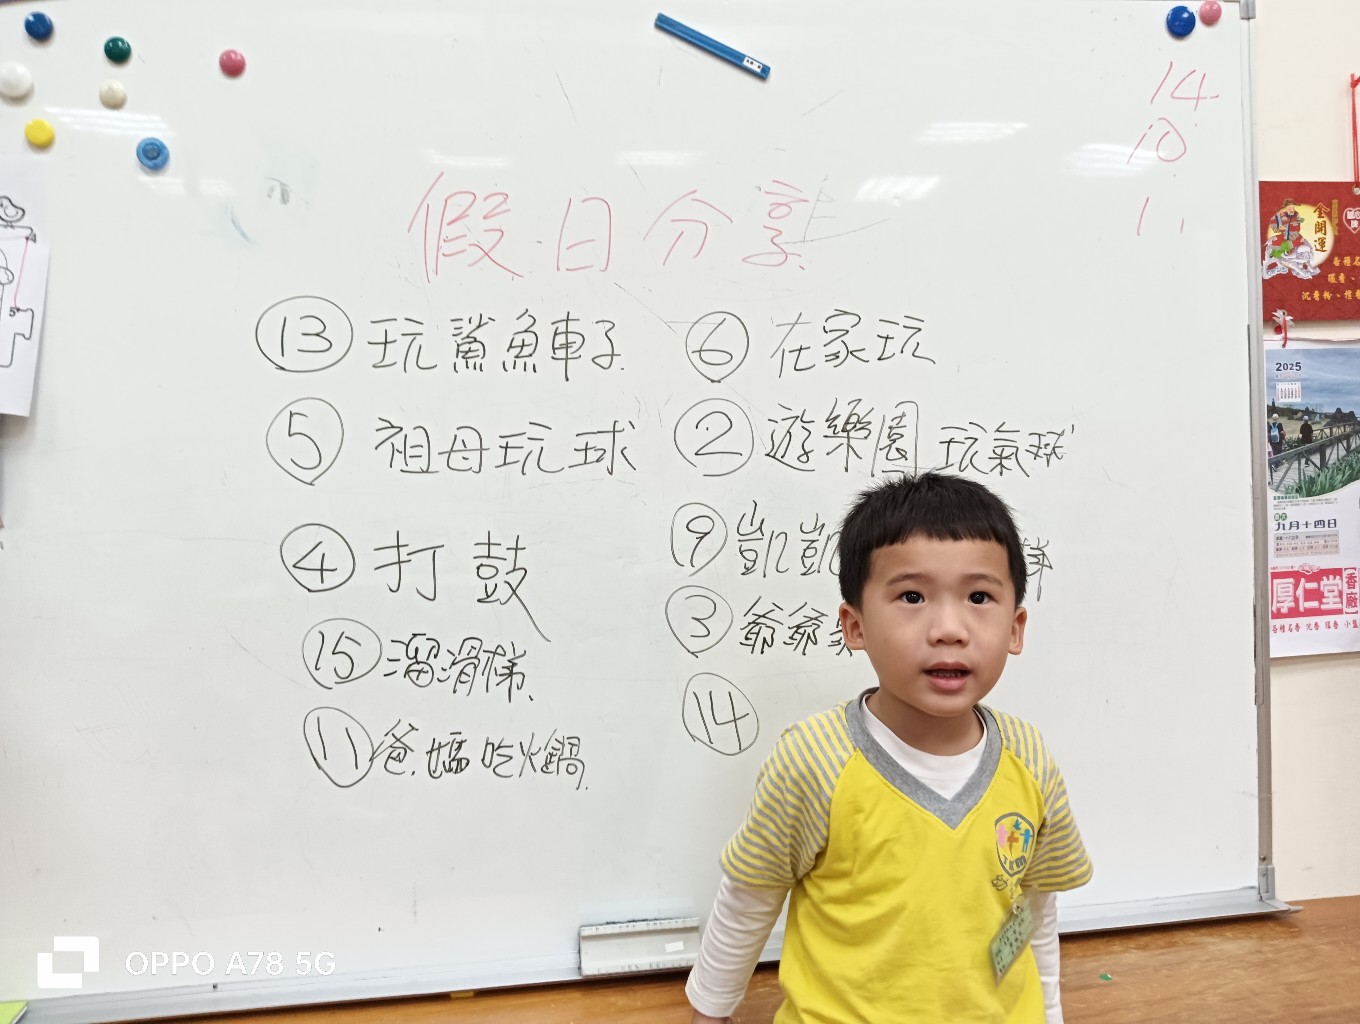 14
10
11
假日分享
⑬ 玩鯊魚車子
⑤ 祖母玩球
④ 打鼓
⑮ 溜滑梯
⑪ 爸媽吃火鍋
⑥ 在家玩
② 遊樂園玩氣球
⑨ 凱凱
③ 爺爺
⑭
金開運
2025
九月十四日
厚仁堂
香廠
OPPO A78 5G